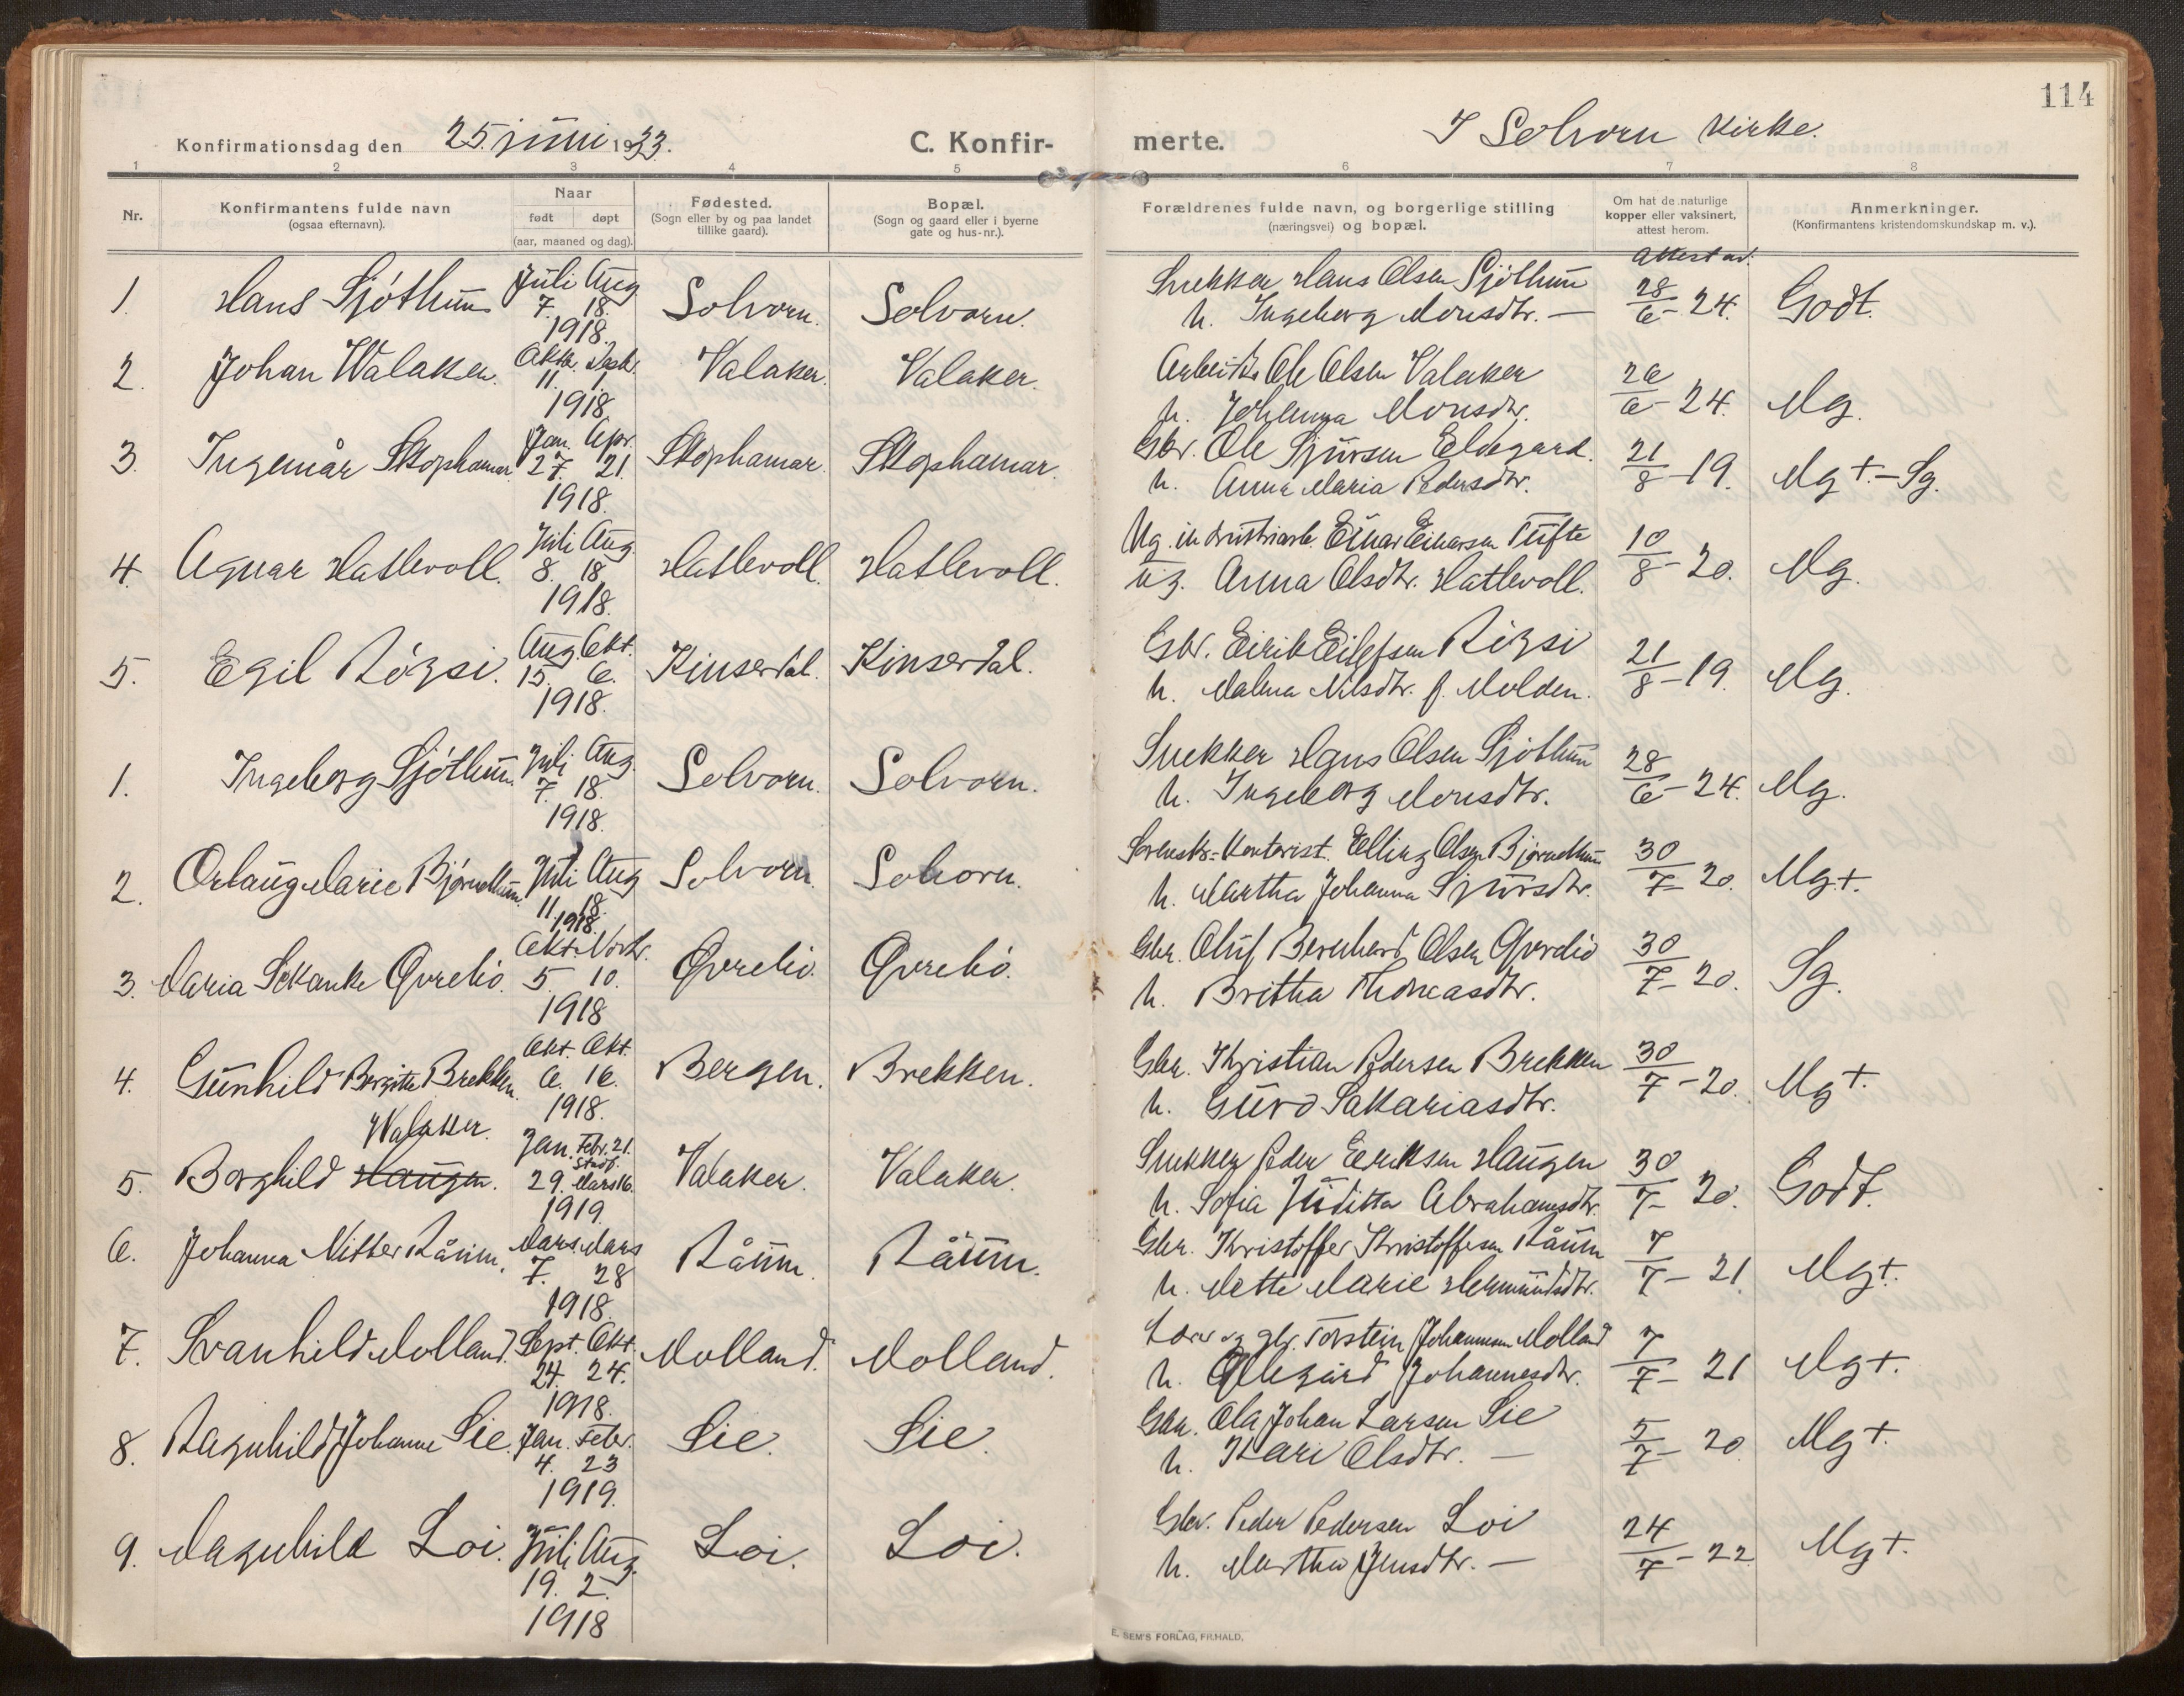 114
Konfirmationsdag den 25. juni 1933. C. Konfir- merte. I Solvorn kirke.
1 2 3 4 5 6 7 8
Nr. Konfirmantens fulde navn (ogsaa efternavn). Naar født døpt (aar, maaned og dag). Fødested. (Sogn eller by og paa landet tillike gaard). Bopæl. (Sogn og gaard eller i byerne gate og hus-nr.). Forældrenes fulde navn, og borgerlige stilling (næringsvei) og bopæl. Om hat de naturlige kopper eller vaksinert, attest herom. Anmerkninger. (Konfirmantens kristendomskundskap m. v.).
Attest av.
1. Hans Sjøthun Juli Aug Solvorn. Solvorn. Snekker Hans Olsen Sjøthun 28/6-24. Godt.
7. 18. h. Ingeborg Monsdtr. —
1918.
2. Johan Walaker. Oktbr. Valaker. Valaker. Arbeider Ole Olsen Valaker 26/6-24. Mg.
11. 1. h. Johanna Monsdtr.
1918.
3. Ingemår Skophamar Jan. Apr. Skophamar. Skophamar. Gbr. Ole Sjursen Eldegard. 21/8-19. Mg+.-Sg.
27. 21. h. Anna Maria Pedersdtr.
1918.
4. Agnar Hatlevoll. Juli Aug. Hatlevoll. Hatlevoll. Ug. industriarb. Einar Einarsen Tufte 10/8-20. Mg.
8. 18 ug. Anna Olsdtr. Hatlevoll.
1918.
5. Egil Røgsi. Aug. Okt. Kinserdal. Kinserdal. Gbr. Eirik Eilefsen Røgsi 21/8-19. Mg.
15. 6. h. Malena Nilsdtr. f. Molden.
1918.
1. Ingeborg Sjøthun. Juli Aug. Solvorn. Solvorn. Snekker Hans Olsen Sjøthun 28/6-24. Mg.
7. 18. h. Ingeborg Monsdtr.
1918.
2. Orlaug Marie Bjørnethun. Juli Aug Solvorn. Solvorn. Kontorist. Elling Olsen Bjørnethun 30/7-20. Mg.+.
11. 18. h. Martha Johanna Sjursdtr.
1918.
3. Maria Skanke Øvrelio. Okt. Novbr. Øvrelio. Øvrelio. Gbr. Oluf Bernhard Olsen Øvrelio 30/7-20. Sg.
5. 10. h. Britha Thomasdtr.
1918
4. Gunhild Bergitte Brekken. Okt. Okt. Bergen. Brekken. Gbr. Kristian Pedersen Brekken 30/7-20. Mg+.
6. 16. h. Guro Sakariasdtr.
1918.
Walaker.
5. Borghild Haugen. Jan. Febr. 21. stadf. Valaker. Valaker. Snekker Peder Eriksen Haugen 30/7-20. Godt.
29. Mars 16. h. Sofia Juditta Abrahamsdtr.
1919.
6. Johanna Nitter Råum. Mars. Mars Råum. Råum. Gbr. Kristoffer Kristoffersen Råum 7/7-21. Mg+.
7. 28 h. Mette Marie Hermundsdtr.
1918
7. Svanhild Molland. Sept. Okt. Molland. Molland. Lærer og gbr. Torstein Johannesen Molland 7/7-21 Mg+.
24. 24. h. Ollegård Johannesdtr.
1918.
8. Ragnhild Johanne Sie. Jan. Febr. Sie. Sie. Gbr. Ola Johan Larsen Sie 5/7-20 Mg+.
4. 23 h. Kari Olsdtr. —
1919.
9. Magnhild Loi. Juli Aug. Loi. Loi. Gbr. Peder Pedersen Loi 24/7-22 Mg+.
19. 2. h. Martha Jensdtr. —
1918
E. SEM'S FORLAG, FR.HALD.